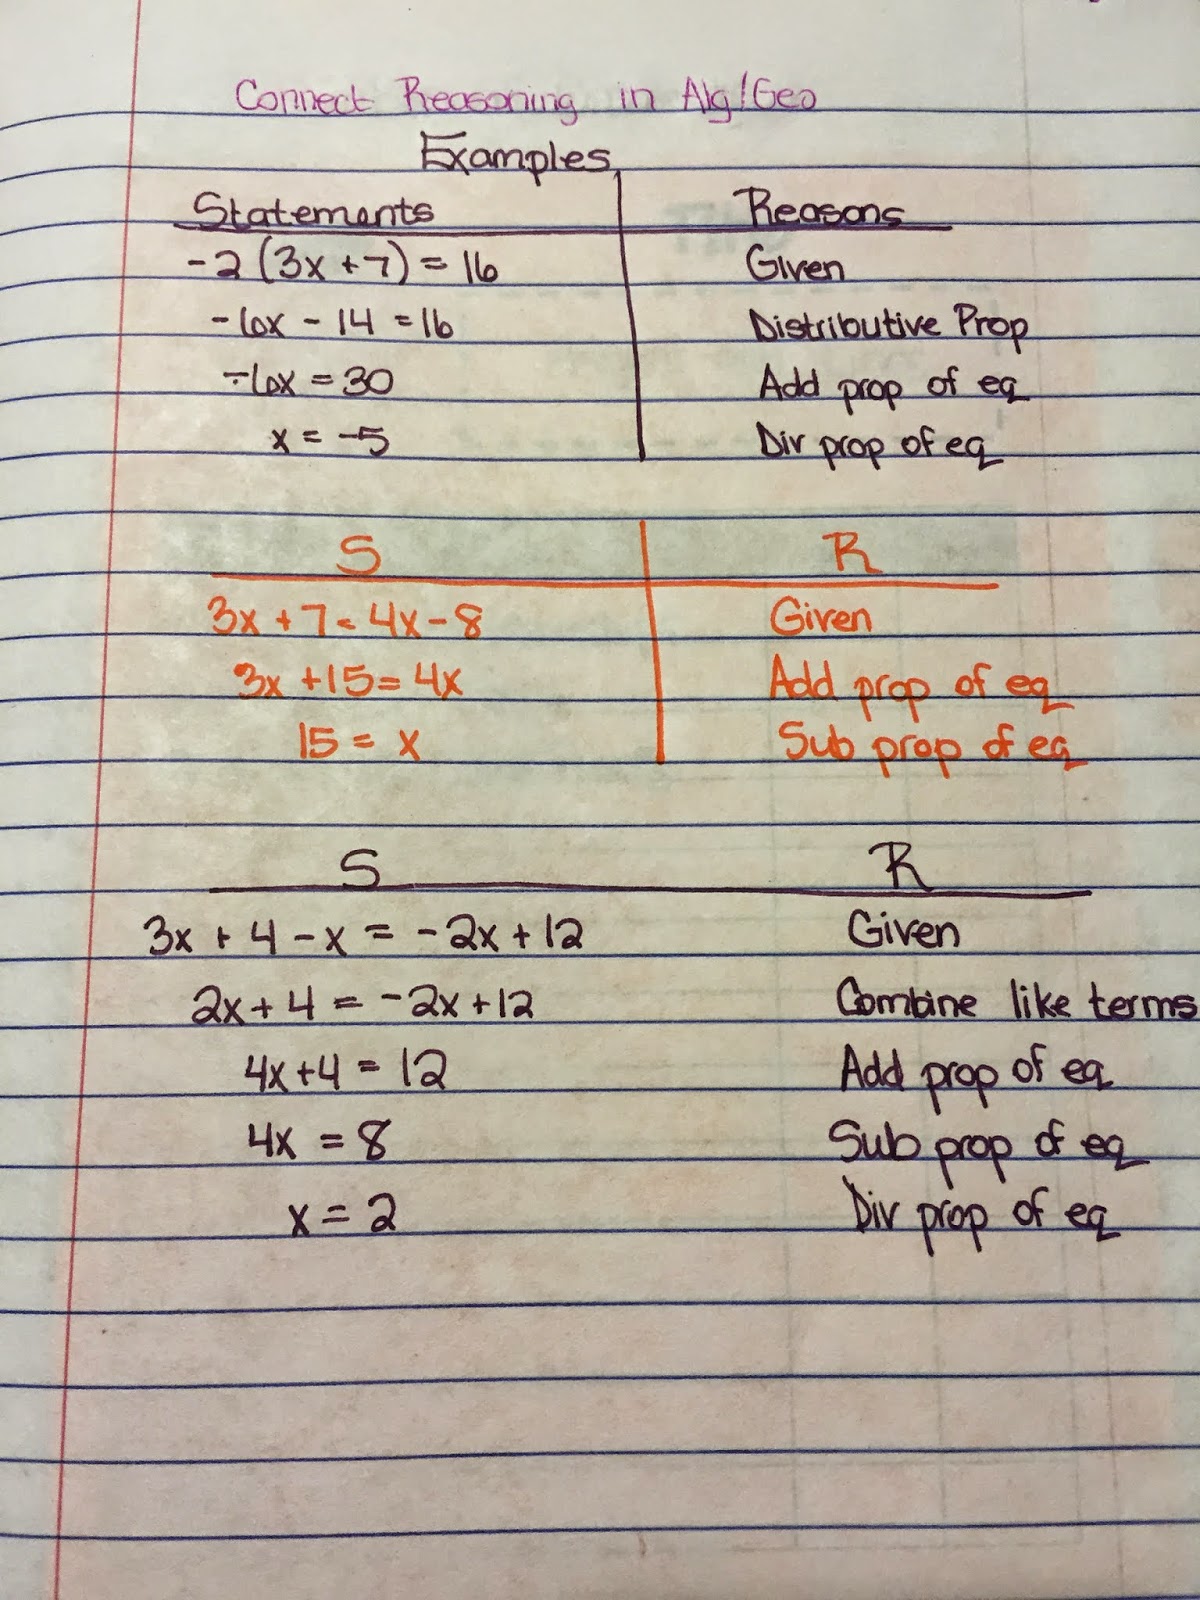 Connect Reasoning in Alg/Geo
Examples
Statements Reasons
-2(3x+7) = 16 Given
-6x - 14 = 16 Distributive Prop
-6x = 30 Add prop of eq
x = -5 Div prop of eq
S R
3x + 7 = 4x - 8 Given
3x + 15 = 4x Add prop of eq
15 = x Sub prop of eq
S R
3x + 4 - x = -2x + 12 Given
2x + 4 = -2x + 12 Combine like terms
4x + 4 = 12 Add prop of eq
4x = 8 Sub prop of eq
x = 2 Div prop of eq